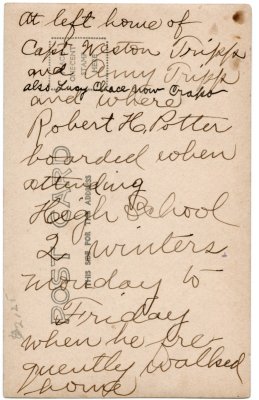 At left home of
Capt. Weston Tripp
and Amy Tripp
also Lucy Chace now Crapo
and where
Robert H. Potter
boarded when
attending
High School
2 winters
Monday to
Friday
when he fre
quently walked
home
POST CARD
THIS SIDE FOR THE ADDRESS
PLACE
ONE CENT
STAMP
HERE